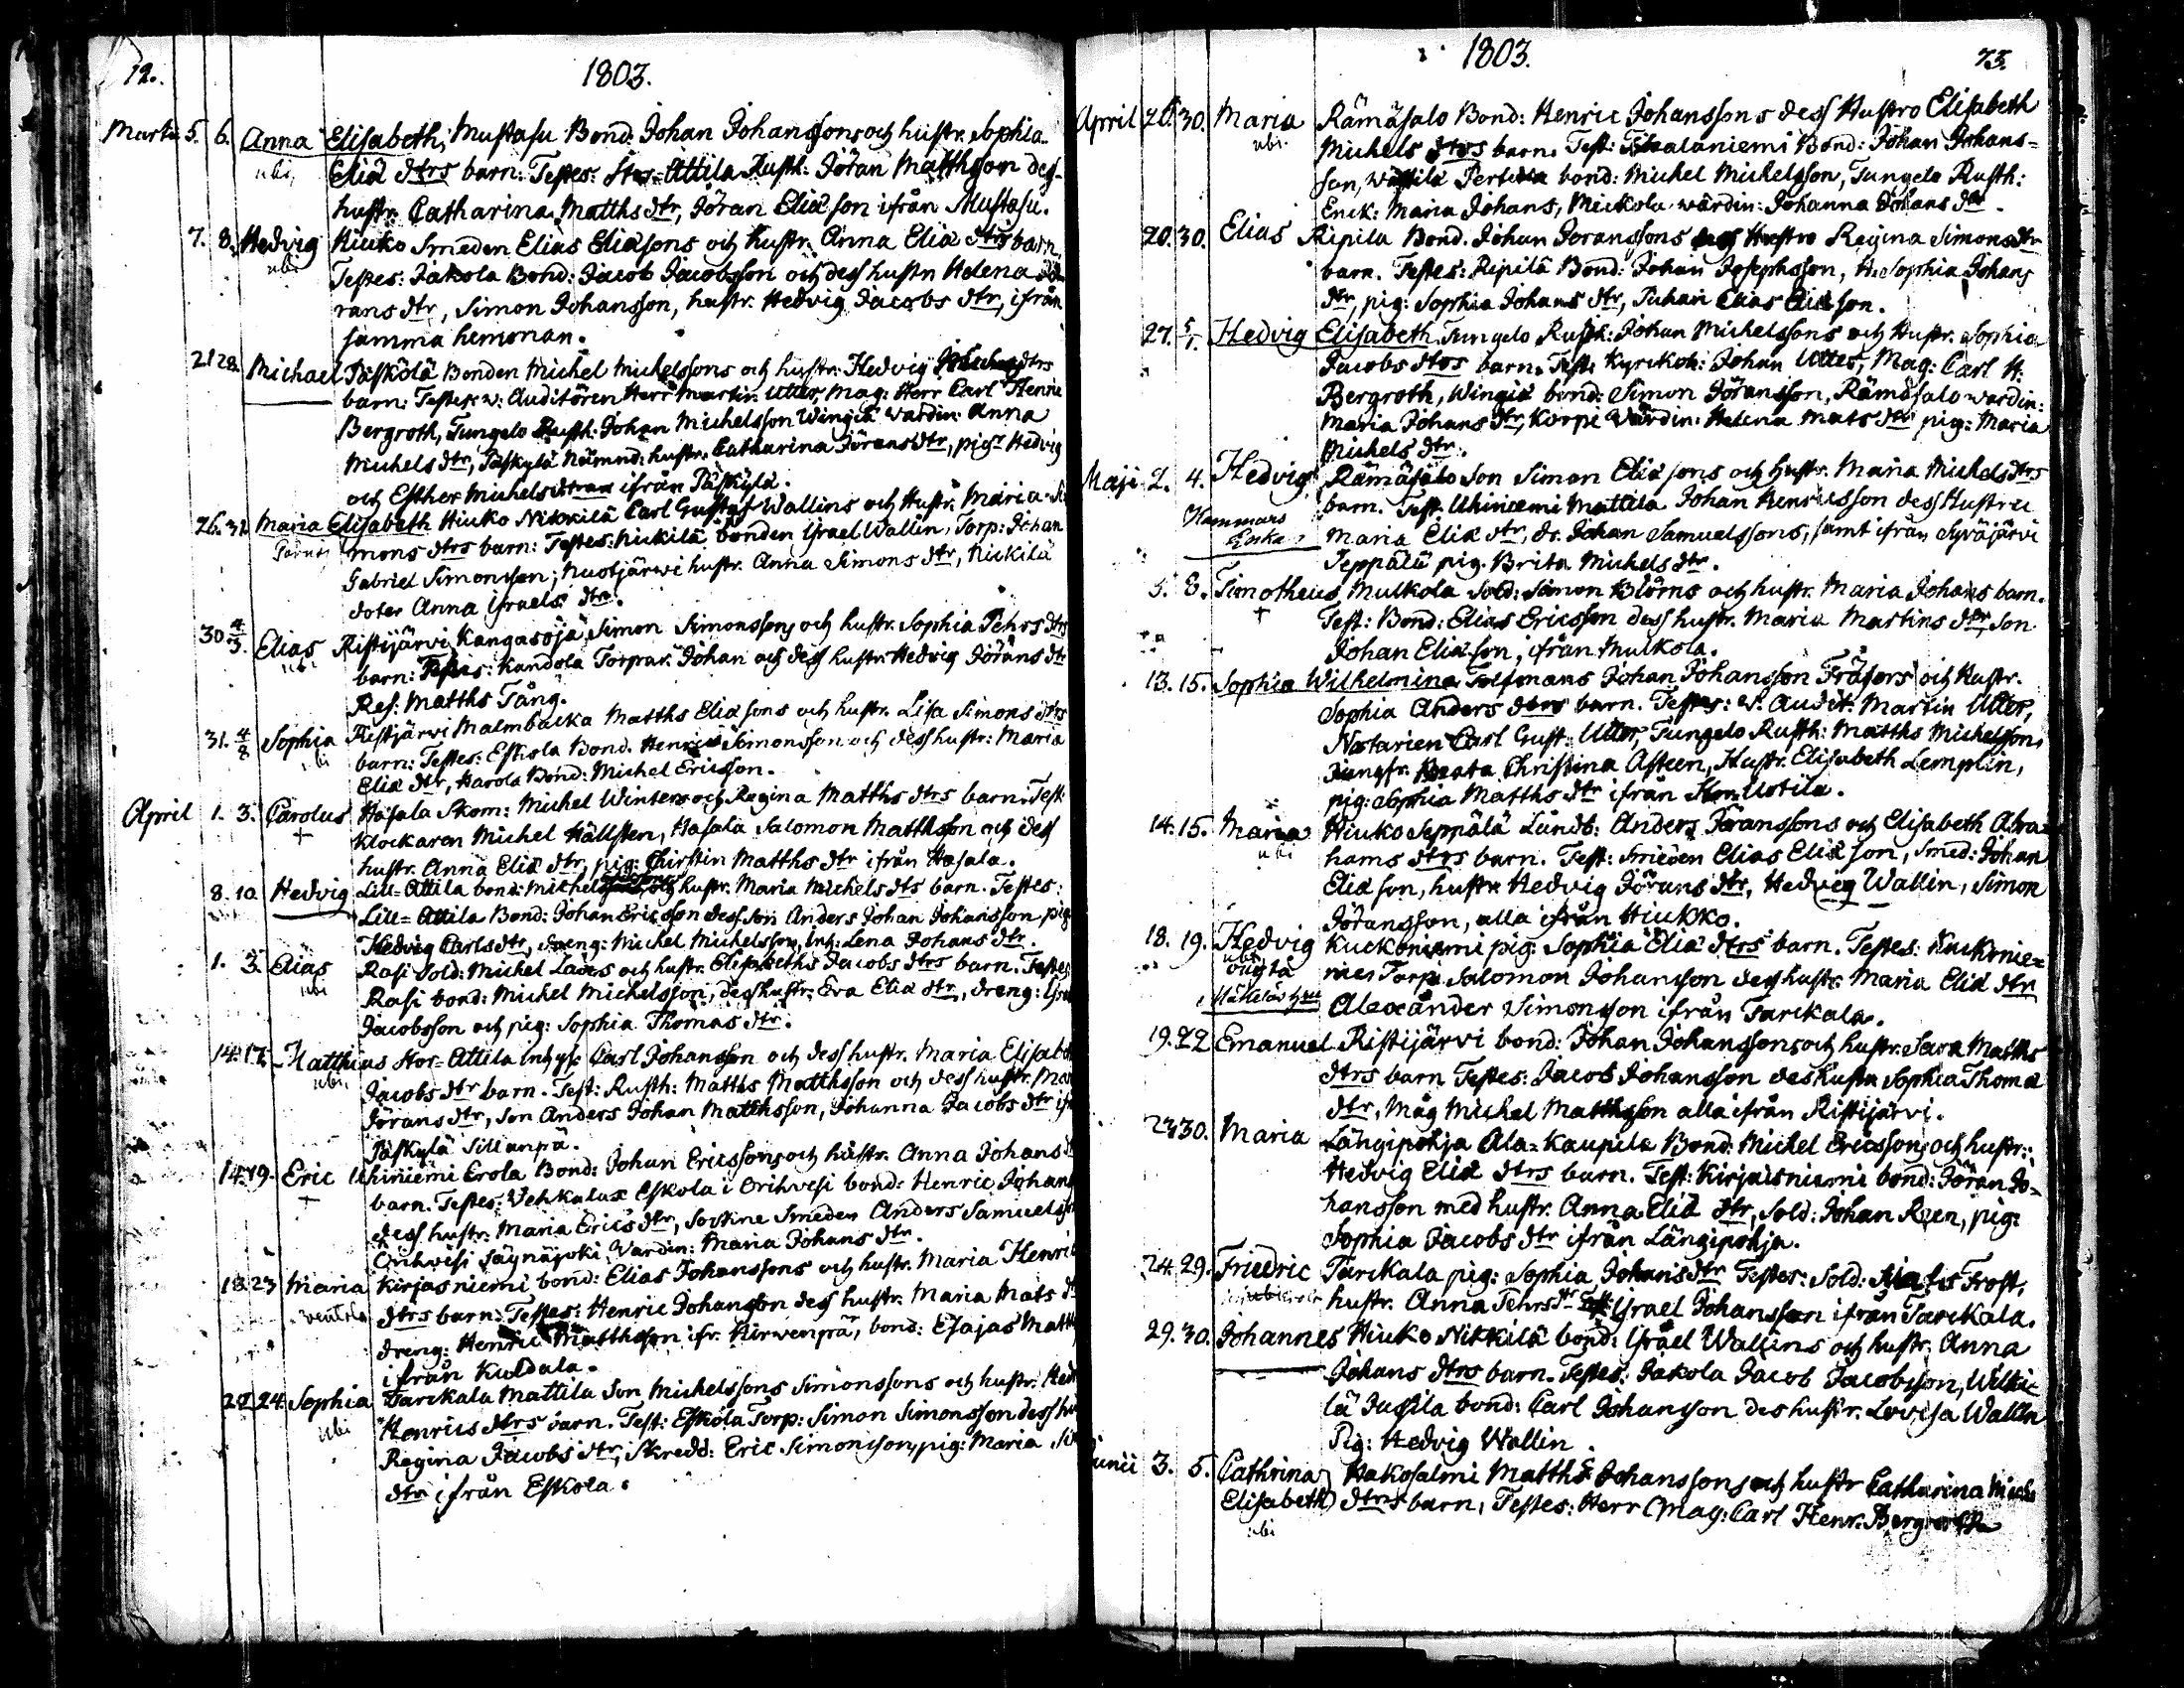 72.
1803.
Martii 5. 6. Anna Elisabeth, Mustasu Bond: Johan Johanssons och hustr. Sophia
ubi, Eliä dtrs barn. Testes: Stor-Attila Rusth: Jöran Matthsson des-
hustr. Catharina Matths dtr, Jöran Eliäson ifrån Mustasu.
7. 8. Hedvig Hiuko Smeden Elias Eliäsons och hustr. Anna Eliä dtrs barn
ubi Testes: Jakola Bond: Jacob Jacobsson och dess hustr. Helena Jö-
rans dtr, Simon Johansson, hustr. Hedvig Jacobs dtr, ifrån
samma hemman.
21 28. Michael Päskölä Bonden Michel Michelssons och hustr: Hedvig dtrs
barn: Testes: v: Auditören Herr Martin Utter, Mag: Herr Carl Henric
Bergroth, Tungelo Rusth: Johan Michelsson Wingiä Värdin: Anna
Michels dtr, Päskylä Nämnd: hustr. Catharina Jörans dtr, pigr Hedvig
och Esther Michels ifrån Päskylä.
26. 31. Maria Elisabeth Hiuko Nikkilä Carl Gustaf Wallins och Hustr. Maria Si
mons dtrs barn: Testes: Nickilä bonden Israel Wallin, Torp: Johan
Gabriel Simonsson; Nustjärwi hustr. Anna Simons dtr, Nickilä
doter Anna Israels dtr.
30 4/3. Elias Ristijärvi Kangasojä Simon Simonssons och hustr. Sophia Pehrs dtrs
ubi barn: Testes: Kandola Torpar: Johan och dess hustr Hedvig Jörans dtr
Res: Matths Tång.
31. 4/8 Sophia Ristjärvi Malmbacka Matths Eliäsons och hustr. Lisa Simons dtrs
ubi barn: Testes: Eskola Bond. Henric Simonsson och dess hustr: Maria
Eliä dtr, Harola Bond: Michel Ericsson.
April 1. 3. Carolus Hasala Skom: Michel Winters och Regina Matths dtrs barn. Test:
+ Klockaren Michel Hällsten, Hasala Salomon Matthsson och dess
hustr. Anna Eliä dtr, pig: Chirstin Matths dtr ifrån Hasala.
8. 10 Hedvig Lill-Attila bond: Michel hustr. Maria Michels dts barn. Testes:
Lill-Attila Bond: Johan Ericsson dess son Anders Johan Johansson pig.
Hedvig Carls dtr, Dreng: Michel Michelsson, Inh: Lena Johans dtr.
1. 3. Elias Rasi Sold: Michel Laders och hustr. Elisabeths Jacobs dtrs barn. Testes:
ubi Rasi bond: Michel Michelsson, dess hustr. Eva Eliä dtr, dreng: Isra
Jacobsson och pig: Sophia Thomas dtr.
14. 17. Matthias Stor-Attila Inhys Carl Johansson och dess hustr. Maria Elisab
ubi. Jacobs dtr barn. Test: Rusth: Matths Matthsson och dess hustr. Mar
Jörans dtr, Son Anders Johan Matthsson, Johanna Jacobs dtr ifr
Päskylä Sillanpä.
14. 19. Eric Uhiniemi Erola Bond: Johan Ericssons och hustr. Anna Johans d
+ barn. Testes: Vehkalax Eskola i Orihvesi bond: Henric Johans
dess hustr. Maria Erics dtr, Smeden Anders Samuelss
Orihvesi Säynäjoki Värdin: Maria Johans dtr.
18. 23 Maria Kirjasniemi bond: Elias Johanssons och hustr. Maria Henri
dtrs barn. Testes: Henric Johansson dess hustr. Maria Mats d
dreng: Henric Matthsson ifr. Hirvenpä, bond: Esajas Matth
ifrån Kuldala.
22 24. Sophia Tarckala Mattila Son Michelssons Simonssons och hustr. Hed
ubi Henrics dtrs barn. Test: Eskola Torp: Simon Simonsson dess hu
Regina Jacobs dtr, Skredd: Eric Simonsson, pig: Maria Si
dtr ifrån Eskola.
1803. 73.
April 26. 30. Maria Rämäsalo Bond: Henric Johanssons dess Hustro Elisabeth
ubi. Michels dtrs barn. Test: Bond: Johan Johans-
son, bond: Michel Michelsson, Tungelo Rusth:
Enck: Maria Johans, Mickola wärdin: Johanna Johans dtr.
20. 30. Elias Ripila Bond. Johan Joranssons Hustro Regina Simons dtr
barn. Testes: Ripilä Bond: Johan Josephsson, H. Sophia Johans
dtr, pig: Sophia Johans dtr, Elias Eliäson.
27. 5/1. Hedvig Elisabeth Tungelo Rusth: Johan Michelssons och Hustr. Sophia
Jacobs dtrs barn. Test: Kyrckoh: Johan Utter, Mag: Carl H.
Bergroth, Wingiä bond: Simon Jöransson, Rämäsalo wärdin:
Maria Johans dtr, Korpi Wärdin: Helena Mats dtr pig: Maria
Michels dtr.
Maji 2. 4. Hedvig Rämäsalo Son Simon Eliäsons och hustr. Maria Michels dtrs
barn. Test: Uhiniemi Mattila Johan Henricsson dess Hustru
Maria Eliä dtr, dr. Johan Samuelssons, samt ifrån Syväjärvi
Teppälä pig. Brita Michels dtr.
5. 8. Timotheus Mulkola Sold: Simon Blöms och hustr. Maria Johans barn.
+ Test: Bond: Elias Ericsson dess hustr. Maria Martins dtr, Son
Johan Eliäson, ifrån Mulkola.
13. 15. Sophia Wilhelmina Tolfmans Johan Johansson Fräsers och Hustr.
Sophia Anders dtrs barn. Testes: v. Audit: Martin Utter,
Notarien Carl Gust: Utter, Tungelo Rusth: Matths Michelsson,
Jungfr. Beata Christina Asteen, Hustr. Elisabeth Lemplin,
pig: Sophia Matths dtr ifrån Uotila.
14. 15. Maria Hiuko Seppälä Landb: Anders Joranssons och Elisabeth Abra-
ubi hams dtrs barn. Test: Smeden Elias Eliäson, Smed: Johan
Eliäson, hustr. Hedvig Jörans dtr, Hedveg Wallin, Simon
Jöransson, alla ifrån Hiukko.
18. 19. Hedvig Kuckoniemi pig: Sophia Eliä dtrs barn. Testes: Kuckonie-
oägta mes Torp: Salomon Johansson dess hustr. Maria Eliä dtr
Alexander Simonsson ifrån Tarckala.
19. 22 Emanuel Ristijärvi bond: Johan Johanssons och hustr. Sara Matths
dtrs barn Testes: Jacob Johansson des hustr Sophia Thoma
dtr, Måg Michel Matthsson alla ifrån Ristijärvi.
23 30. Maria Längipohja Ala-Kaupila Bond: Michel Ericssons och hustr:
Hedvig Eliä dtrs barn. Test: Kirjaisniemi bond: Jöran Jo-
hansson med hustr. Anna Eliä dtr, Sold: Johan Reen, pig:
Sophia Jacobs dtr ifrån Längipohja.
24. 29. Friedric Tarckala pig: Sophia Johans dtr Testes: Sold: Frost,
hustr. Anna Pehrs dtr Israel Johansson ifrån Tarckala.
29. 30. Johannes Hiuko Nikkilä bond: Israel Wallins och hustr. Anna
Johans dtrs barn. Testes: Jakola Jacob Jacobsson, Wilki-
lä Jussila bond: Carl Johansson des hustr. Lovisa Wallin
Pig: Hedvig Wallin.
Junii 3. 5. Cathrina Hakosalmi Matths Johanssons och hustr Catharina Miche
Elisabeth dtrs barn, Testes: Herr Mag: Carl Henr: Bergroth
ubi